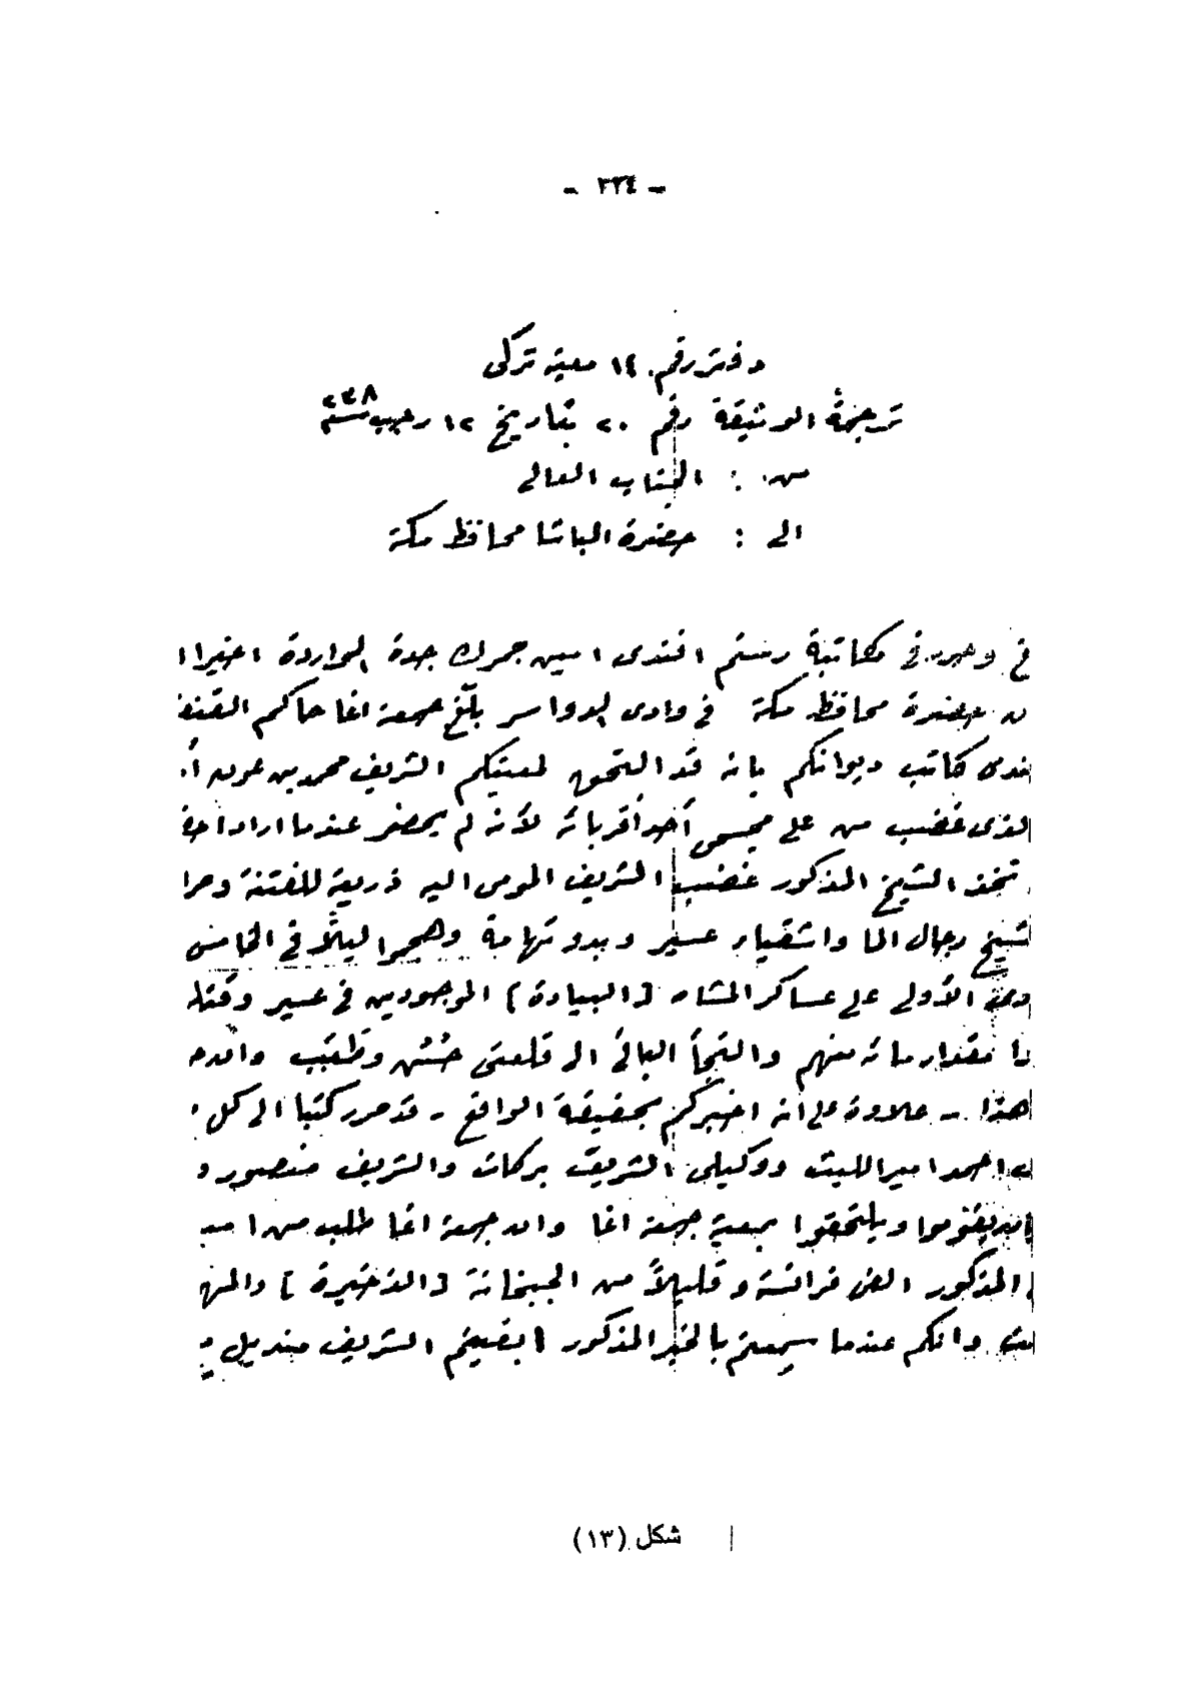 - ٣٣٤ -
دفتر رقم ١٤ معية تركى
ترجمة الوثيقة رقم ٢٠ بتاريخ ١٢ رجب سنة ٢٣٨
من : الجناب العالى
الى : حضرة الباشا محافظ مكة
فى وجود فى مكاتبة رستم افندى امين جمرك جدة الواردة اخيرا ا
حضرة محافظ مكة فى وادى الدواسر بلّغ جمعة اغا حاكم القنفذ
ندى كاتب ديوانكم بانه قد التحق لمعيتكم الشريف محمد بن عون أ
لذى غضب من على مجسمى أحد أقربائه لأنه لم يحضر عندما اراد
تخذ الشيخ المذكور غضب الشريف المومى اليه ذريعة للفتنة وحرا
شيخ رجال المع واشقياء عسير وبدو تهامة وهجموا ليلًا فى الخامس
دى الأولى على عساكر المشاه [ البيادة ] الموجودين فى عسير وقتلـ
وا مقدار مائه منهم والتجأ الباقى الى قلعتى وطبب وانه
هذا - علاوة على انه اخبركم بحقيقة الواقع - قد حرر كتبا الى كل
احمد امير الليث ووكيلى الشريف بركات والشريف منصور و
يقوموا ويلتحقوا بمعية جمعة اغا وان جمعة اغا طلب من
المذكور الفى فرانسة وقليلاً من الجبخانة [ الذخيرة ] والمهـ
وانكم عندما سمعتم بالخبر المذكور ابقيتم الشريف منديل
شكل (١٣)